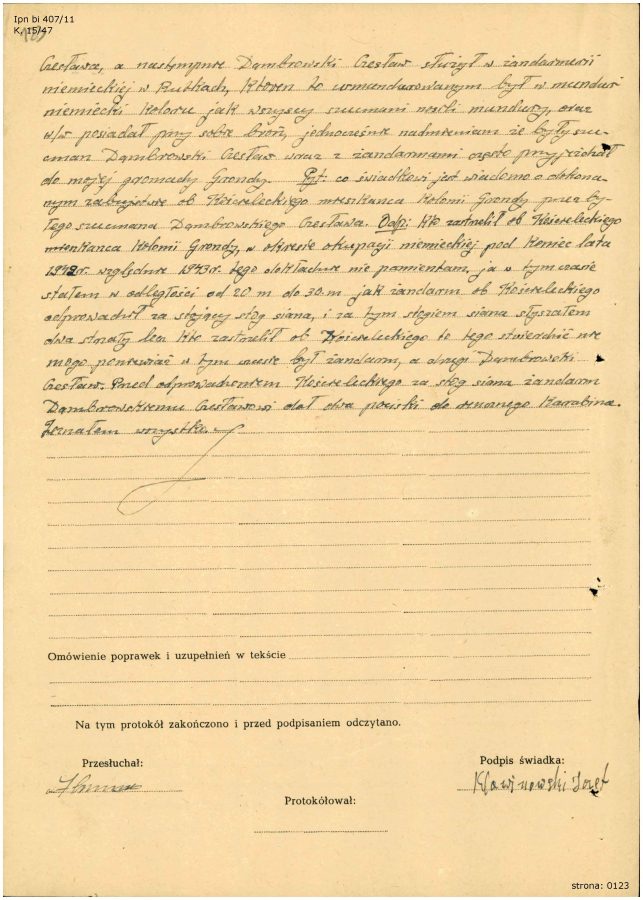 Ipn bi 407/11
K, 15/47
Czesława, a następnie Dąmbrowski Czesław służył w żandarmerii
niemieckiej w Rutkiach, Któren to umundurowanym był w mundur
niemiecki Koloru jak wszyscy szucmani nosili mundury, oraz
w/w posiadał przy sobie broń, jednocześnie nadmieniam że były szuc-
man Dąmbrowski Czesław wraz z żandarmami często przyjeżdżał
do mojej gromady Grondy. Pyt. co świadkowi jest wiadomo o dokona-
nym zabujstwie ob Kościeleckiego mieszkańca Kolonii Grondy przez by-
łego szucmana Dąmbrowskiego Czesława. Odp: Kto zastrzelił ob Kościeleckiego
mieszkańca Kolonii Grondy, w okresie okupacji niemieckiej pod koniec lata
1942r. względnie 1943r. tego dokładnie nie pamientam, ja w tym czasie
stałem w odległości od 20 m do 30 m jak żandarm ob Kościeleckiego
odprowadził za stojący stóg siana, i za tym stogiem siana słyszałem
dwa strzały lecz kto zastrzelił ob Kościeleckiego to tego stwierdzić nie
mogę ponieważ w tym czasie był żandarm, a drugi Dąmbrowski
Czesław. Przed odprowadzeniem Kościeleckiego za stóg siana żandarm
Dąmbrowskiemu Czesławowi dał dwa pociski do ręcznego Karabina.
Zeznałem wszystko.
Omówienie poprawek i uzupełnień w tekście
Na tym protokół zakończono i przed podpisaniem odczytano.
Przesłuchał:
Podpis świadka:
Józef
Protokółował:
strona: 0123